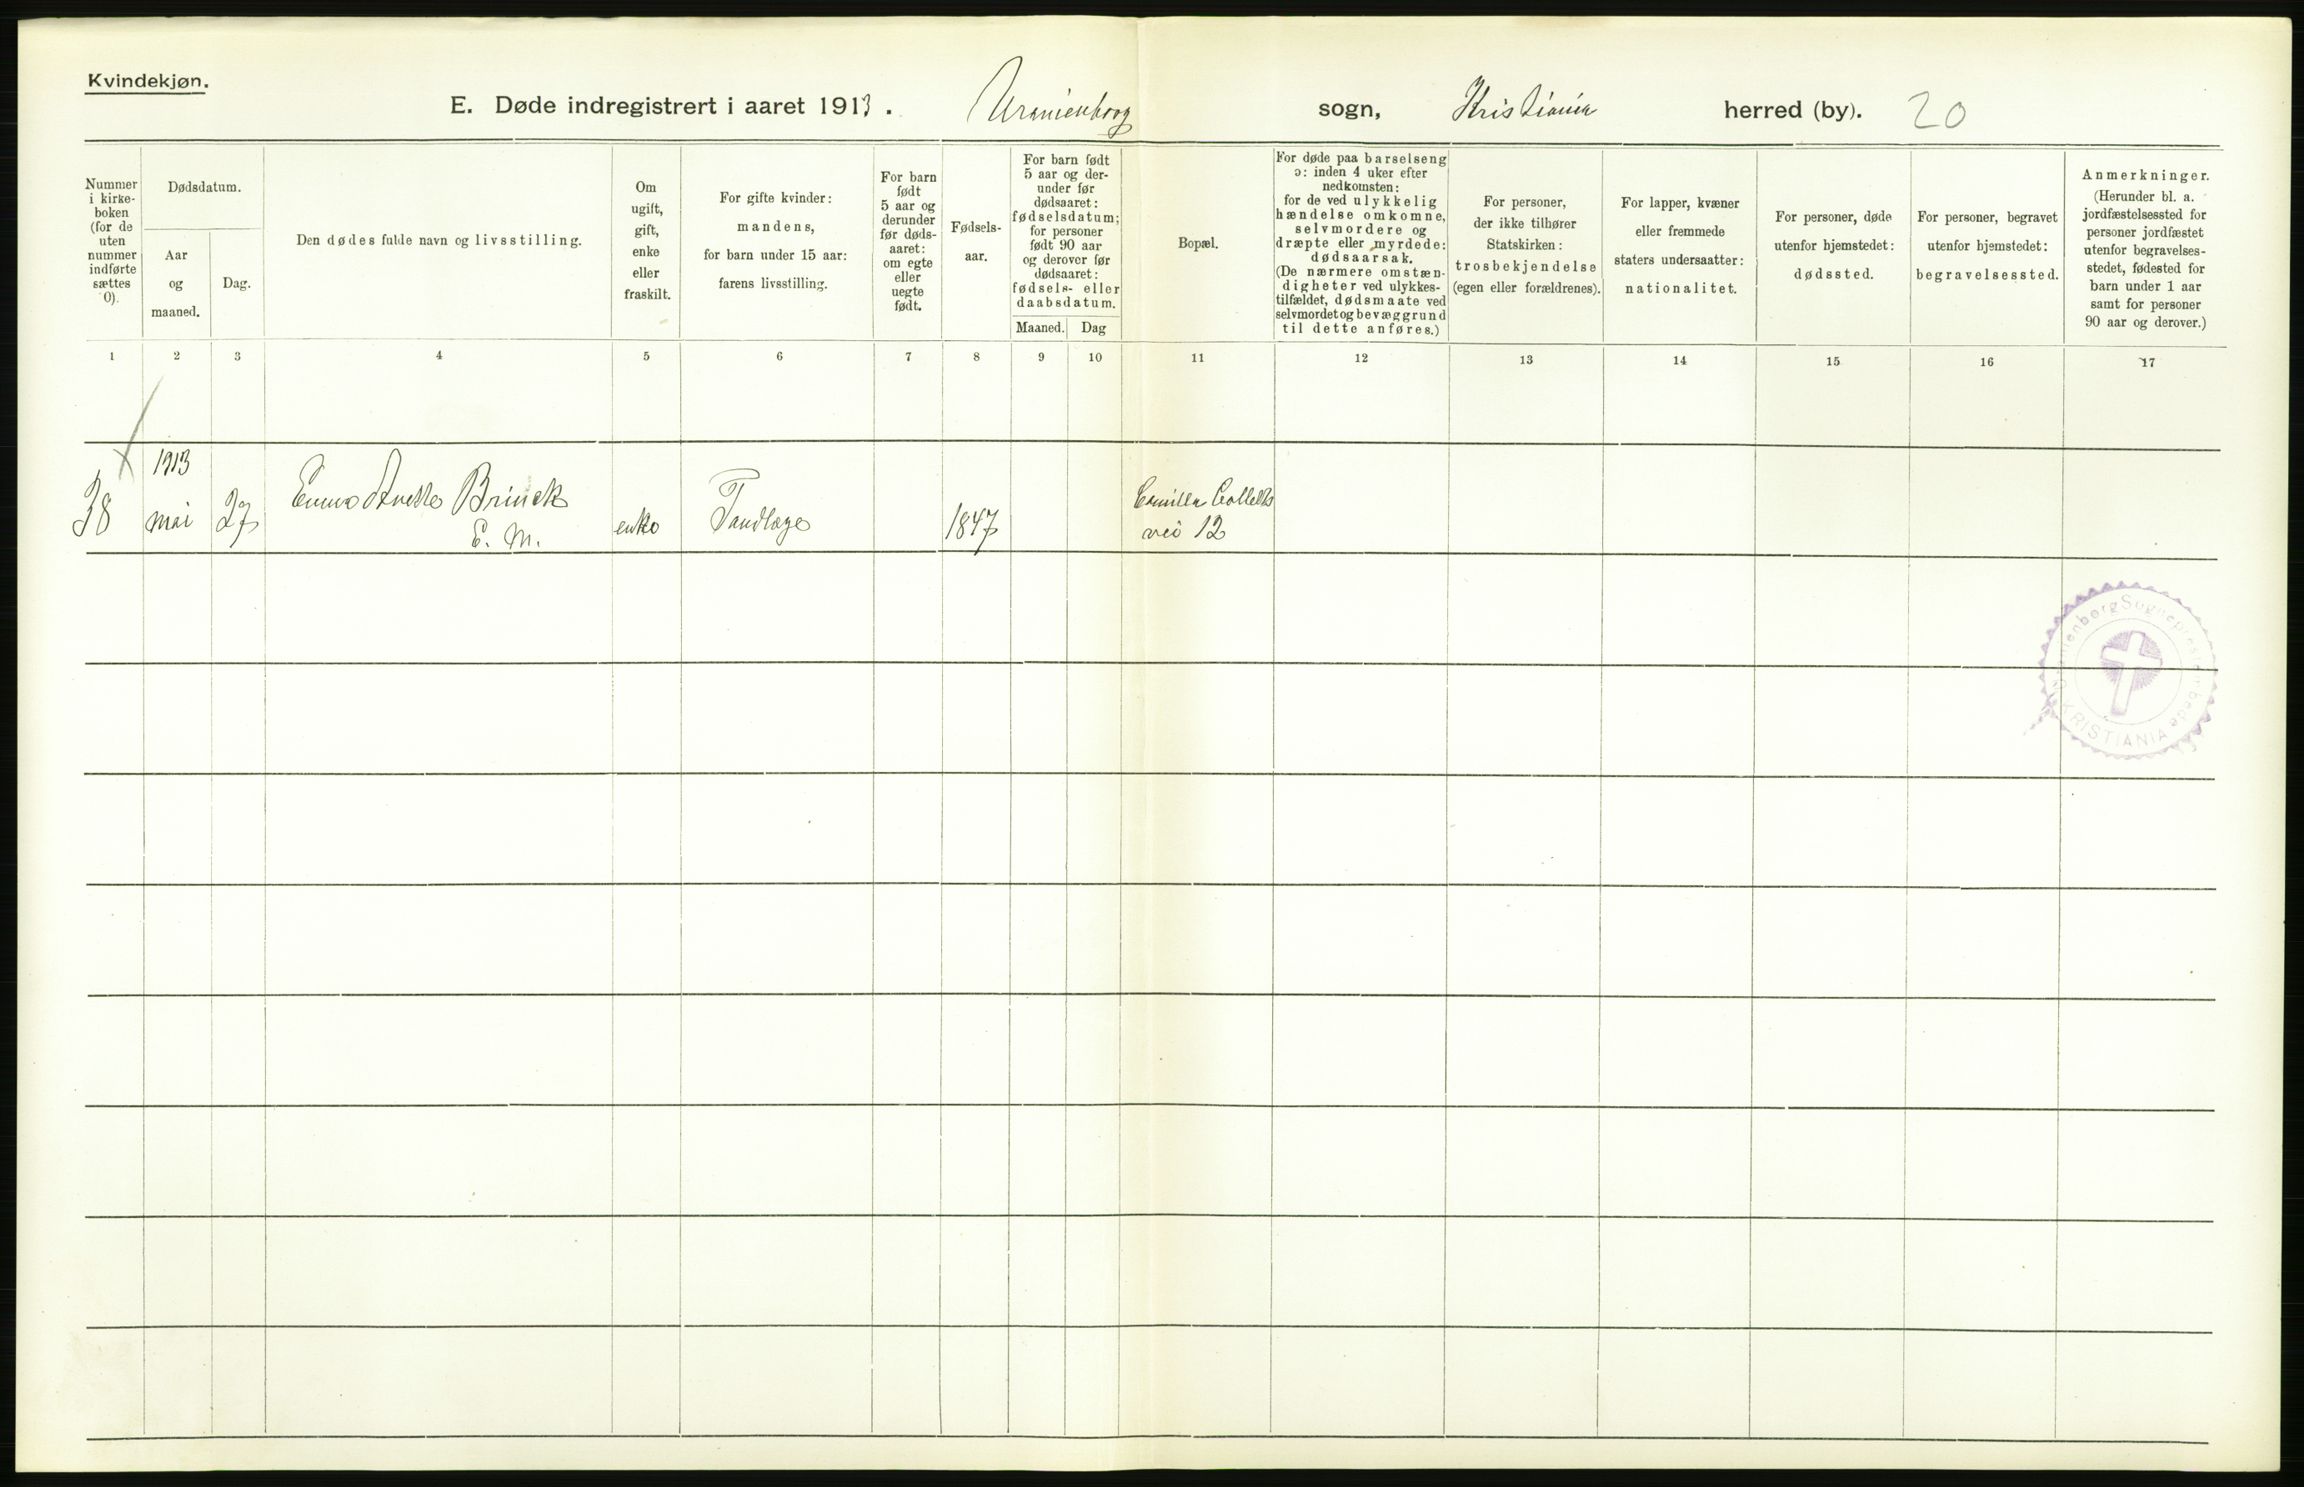 Kvindekjøn.
E. Døde indregistrert i aaret 1913. Uranienborg sogn, Kristiania herred (by). 20
Nummer
i kirke-
boken
(for de
uten
nummer
indførte
sættes
0).
Dødsdatum.
Aar
og
maaned.
Dag.
Den dødes fulde navn og livsstilling.
Om
ugift,
gift,
enke
eller
fraskilt.
For gifte kvinder:
mandens,
for barn under 15 aar:
farens livsstilling.
For barn
født
5 aar og
derunder
før døds-
aaret:
om egte
eller
uegte
født.
Fødsels-
aar.
For barn født
5 aar og der-
under før
dødsaaret:
fødselsdatum;
for personer
født 90 aar
og derover før
dødsaaret:
fødsels- eller
daabsdatum.
Maaned. Dag
Bopæl.
For døde paa barselseng
ɔ: inden 4 uker efter
nedkomsten:
for de ved ulykkelig
hændelse omkomne,
selvmordere og
dræpte eller myrdede:
dødsaarsak.
(De nærmere omstæn-
digheter ved ulykkes-
tilfældet, dødsmaate ved
selvmordet og bevæggrund
til dette anføres.)
For personer,
der ikke tilhører
Statskirken:
trosbekjendelse
(egen eller forældrenes).
For lapper, kvæner
eller fremmede
staters undersaatter:
nationalitet.
For personer, døde
utenfor hjemstedet:
dødssted.
For personer, begravet
utenfor hjemstedet:
begravelsessted.
Anmerkninger.
(Herunder bl. a.
jordfæstelsessted for
personer jordfæstet
utenfor begravelses-
stedet, fødested for
barn under 1 aar
samt for personer
90 aar og derover.)
1 2 3 4 5 6 7 8 9 10 11 12 13 14 15 16 17
1913
38 mai 27 Emma Anette Brinck enke Tandlæge 1847 Camilla Colletts
E. M. vei 12
Uranienborg Sogneprestembede
KRISTIANIA